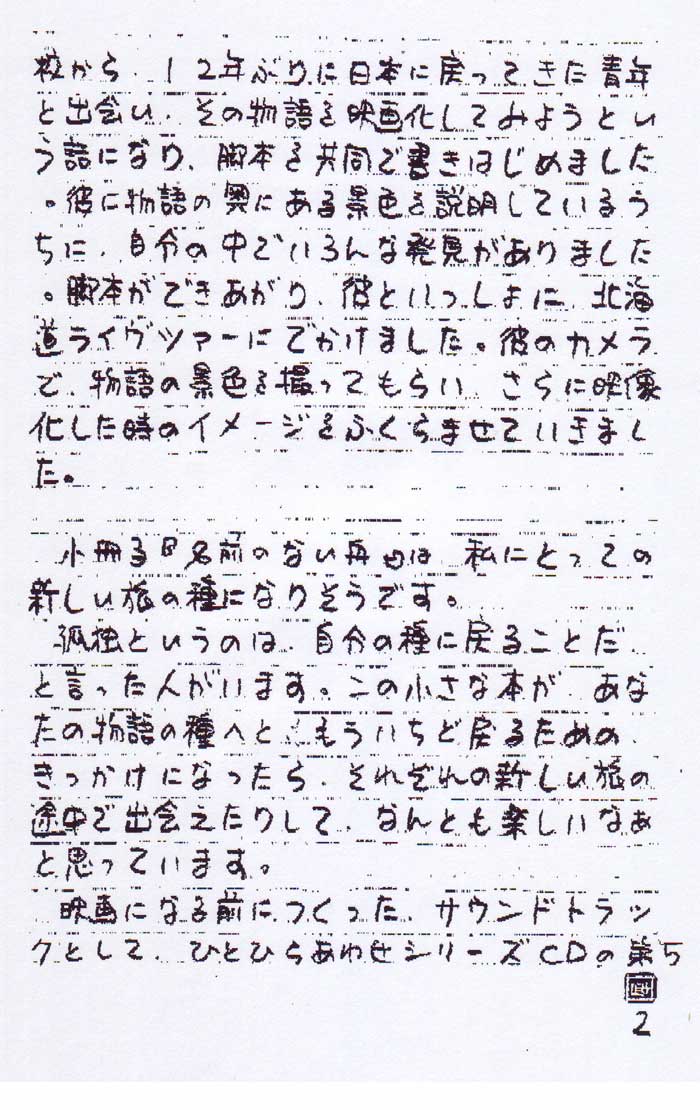 校から、12年ぶりに日本に戻ってきた青年
と出会い、その物語を映画化してみようとい
う話になり、脚本を共同で書きはじめました
。彼に物語の奥にある景色を説明しているう
ちに、自分の中でいろんな発見がありました
。脚本ができあがり、彼といっしょに、北海
道ライヴツァーにでかけました。彼のカメラ
で、物語の景色を撮ってもらい、さらに映像
化した時のイメージをふくらませていきまし
た。
小冊子『名前のない舟』は、私にとっての
新しい旅の種になりそうです。
孤独というのは、自分の種に戻ることだ、
と言った人がいます。この小さな本が、あな
たの物語の種へと、もういちど戻るための、
きっかけになったら、それぞれの新しい旅の
途中で出会えたりして、なんとも楽しいなぁ
と思っています。
映画になる前につくった、サウンドトラッ
クとして、ひとひらあわせシリーズCDの第5
2